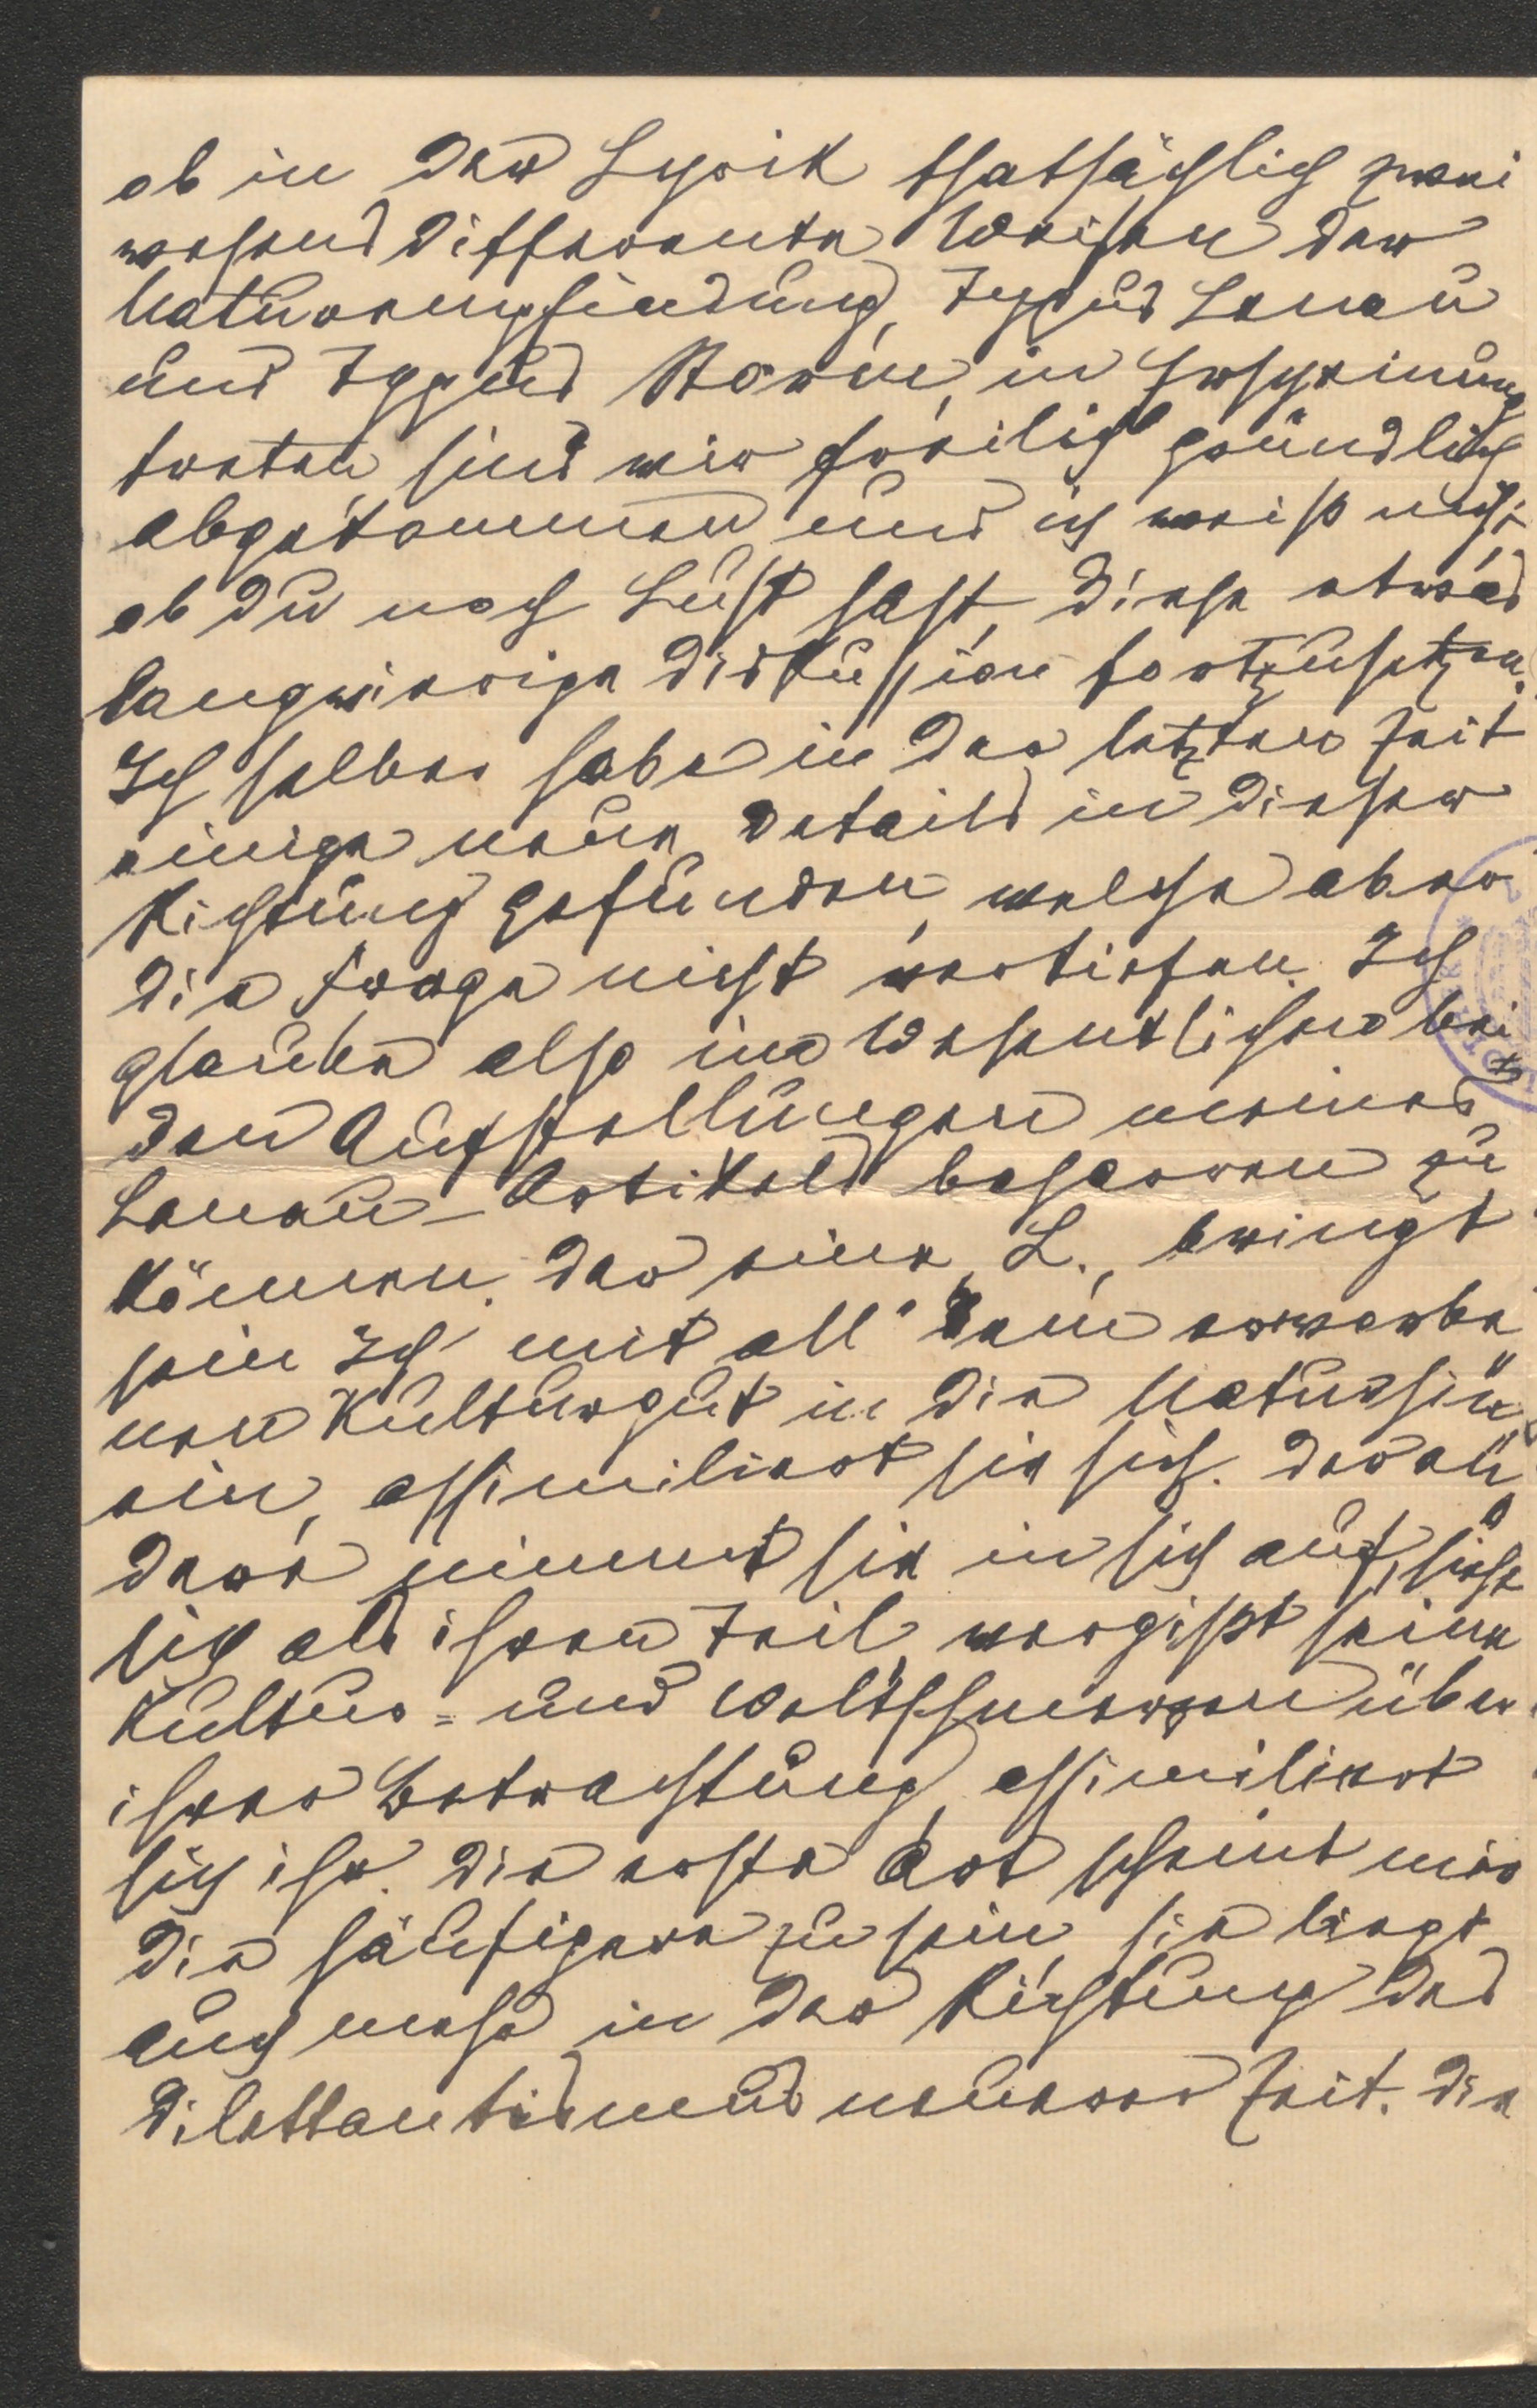 ob in der Lyrik thatsächlich zwei
wesensdifferente Weisen der
Naturempfindung, Typus Lenau
und Typus Storm, in Erscheinung
treten sind wir freilich gründlich
abgekommen und ich weiß nicht,
ob du noch Lust hast, diese etwas
langwierige Diskussion fortzusetzen.
Ich selber habe in der letzten Zeit
einige neue Details in dieser
Richtung gefunden, welche aber
die Frage nicht vertiefen. Ich
glaube also im Wesentlichen bei
den Aufstellungen meines
Lenau-Artikels beharren zu
können. Der eine, L., bringt
sein Ich mit all' dem erworbe
nen Kulturgut in die Natur hin
ein, assimiliert sie sich. Der an
dere nimmt sie in sich auf, sieht
sich als ihren Teil, vergißt seine
Kultur- und Weltschmerzen über
ihrer Betrachtung, assimiliert
sich ihr. Die erste Art scheint mir
die häufigere zu sein, sie liegt
auch mehr in der Richtung des
Dilettantismus neuerer Zeit. Die